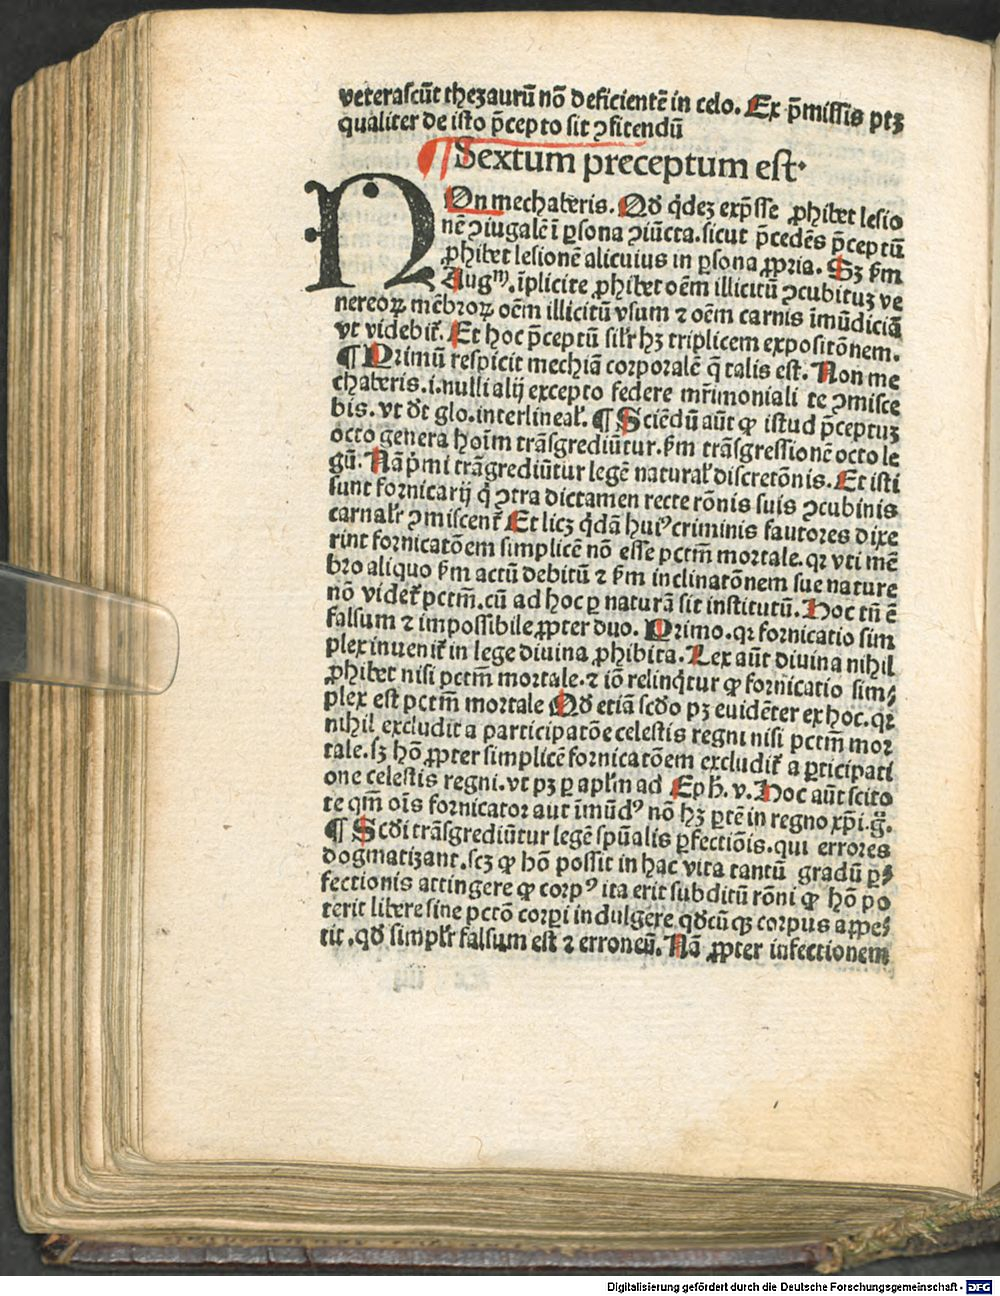 veterascūt thezaurū nō deficientē in celo. Ex p̄missis ptꝫ
qualiter de isto p̄cepto sit ꝯfitendū
¶ Sextum preceptum est.
NOn mechaberis. Qd̄ q̇dez exp̄sse ꝓhibet lesio
nē ꝯiugalē ī ꝑsona ꝯiūcta. sicut p̄cedēs p̄ceptū
ꝓhibet lesionē alicuius in ꝑsona ꝓpria. Sꝫ ẜm
Augᵐ. īplicite ꝓhibet oēm illicitū ꝯcubituꝫ ve
nereoꝝ mēbroꝝ oēm illicitū vsum ⁊ oēm carnis īmūdiciā
vt videbiť. Et hoc p̄ceptū silr̄ hꝫ triplicem expositōnem.
¶ Primū respicit mechiā corporalē q̄ talis est. Non me
chaberis .i. nulli alij excepto federe mr̄imoniali te ꝯmisce
bis. vt dt̄ glo. interlineal̄. ¶ Sciēdū aūt ꝙ istud p̄ceptuꝫ
octo genera hoīm trāsgrediūtur. ẜm trāsgressionē octo le
gū. Nā p̄mi trāgrediūtur legē natural̄ discretōnis. Et isti
sunt fornicarij q̇ ꝯtra dictamen recte rōnis suis ꝯcubinis
carnalr̄ ꝯmiscenť Et licꝫ q̇dā huiꝰ criminis fautores dixe
rint fornicatōem simplicē nō esse pctm̄ mortale. qꝛ vti mē
bro aliquo ẜm actū debitū ⁊ ẜm inclinatōnem sue nature
nō videť pctm̄. cū ad hoc ꝑ naturā sit institutū. Hoc tn̄ ē
falsum ⁊ impossibile ꝓpter duo. Primo. qꝛ fornicatio sim
plex inueniť in lege diuina ꝓhibita. Lex aūt diuina nihil
ꝓhibet nisi pctm̄ mortale. ⁊ iō relinq̇tur ꝙ fornicatio sim⸗
plex est pctm̄ mortale Qd̄ etiā scd̄o pꝫ euidēter ex hoc. qꝛ
nihil excludit a participatōe celestis regni nisi pctm̄ mor
tale. sꝫ hō ꝓpter simplicē fornicatōem excludiť a ꝑticipati
one celestis regni. vt pꝫ ꝑ aplm̄ ad Eph̄. v. Hoc aūt scito
te qm̄ oīs fornicator aut īmūdꝰ nō hꝫ ꝑtē in regno xp̄i. ⁊c̄.
¶ Scd̄i trāsgrediūtur legē spūalis ꝑfectiōis. qui errores
dogmatizant. scꝫ ꝙ hō possit in hac vita tantū gradū ꝑ⸗
fectionis attingere ꝙ corpꝰ ita erit subditū rōni ꝙ hō po
terit libere sine pctō corpi indulgere qd̄cūqꝫ corpus appe⸗
tit. qd̄ simplr̄ falsum est ⁊ erroneū. Nā ꝓpter infectionem
Digitalisierung gefördert durch die Deutsche Forschungsgemeinschaft - DFG